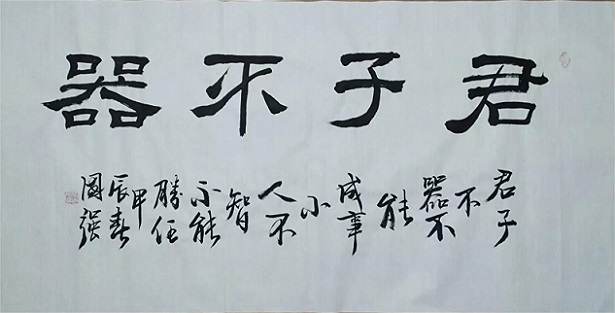 君子不器
君子
不
器不
能
成事
小
人不
智
不能
勝任
甲
辰春
國强